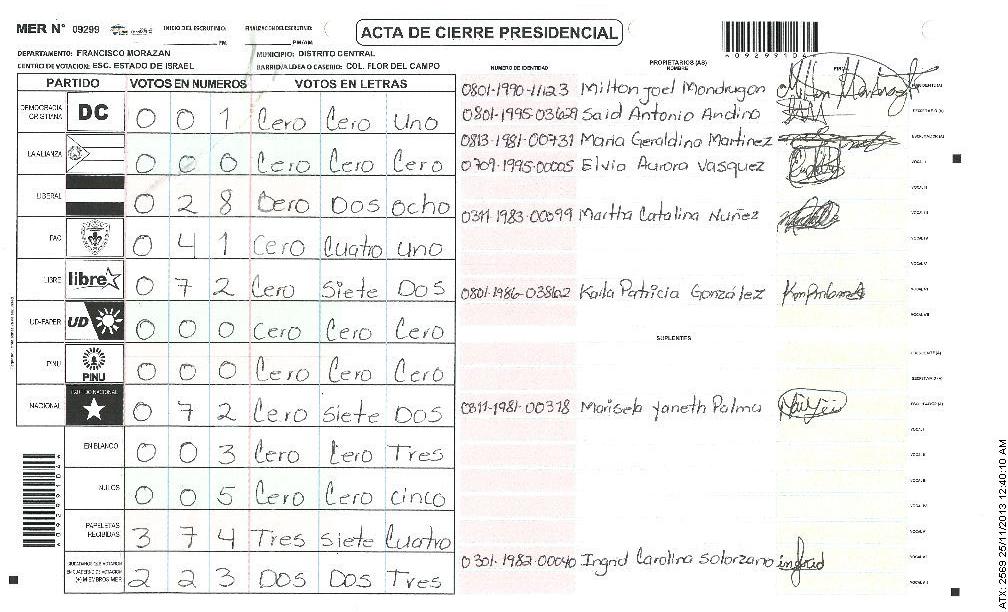 MER N° 09299 INICIO DEL ESCRUTINIO: FINALIZACION DEL ESCRUTINIO:
PM PM/AM
ACTA DE CIERRE PRESIDENCIAL
DEPARTAMENTO: FRANCISCO MORAZAN MUNICIPIO: DISTRITO CENTRAL
CENTRO DE VOTACION: ESC. ESTADO DE ISRAEL BARRIO/ALDEA O CASERIO: COL. FLOR DEL CAMPO
PARTIDO VOTOS EN NUMEROS VOTOS EN LETRAS
DEMOCRACIA CRISTIANA DC 0 0 1 Cero Cero Uno
LA ALIANZA 0 0 0 Cero Cero Cero
LIBERAL 0 2 8 Cero Dos ocho
PAC 0 4 1 Cero Cuatro uno
LIBRE libre 0 7 2 Cero Siete Dos
UD-FAPER UD 0 0 0 Cero Cero Cero
PINU PINU 0 0 0 Cero Cero Cero
NACIONAL PARTIDO NACIONAL 0 7 2 Cero Siete Dos
EN BLANCO 0 0 3 Cero Cero Tres
NULOS 0 0 5 Cero Cero cinco
PAPELETAS RECIBIDAS 3 7 4 Tres siete Cuatro
(+) MIEMBROS MER 2 2 3 Dos Dos Tres
NUMERO DE IDENTIDAD PROPIETARIOS (AS)
NOMBRE
0801-1990-11123 Milton joel Mondragon
0801-1995-03629 Said Antonio Andino
0813-1981-00731 Maria Geraldina Martinez
0709-1995-00005 Elvia Aurora Vasquez
Martha Catalina Nuñez
0801-1986-03862 Karla Patricia González
SUPLENTES
Marisela yaneth Palma
0301-1982-00040 Ingrid Carolina Solorzano ingrid
ATX: 2569 25/11/2013 12:40:10 AM